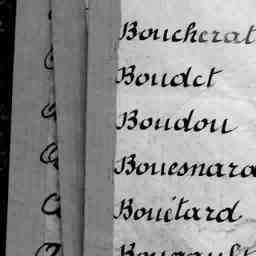 Boucherat
Boudet
Boudou
Bouesnard
Bouëtard
Bougault